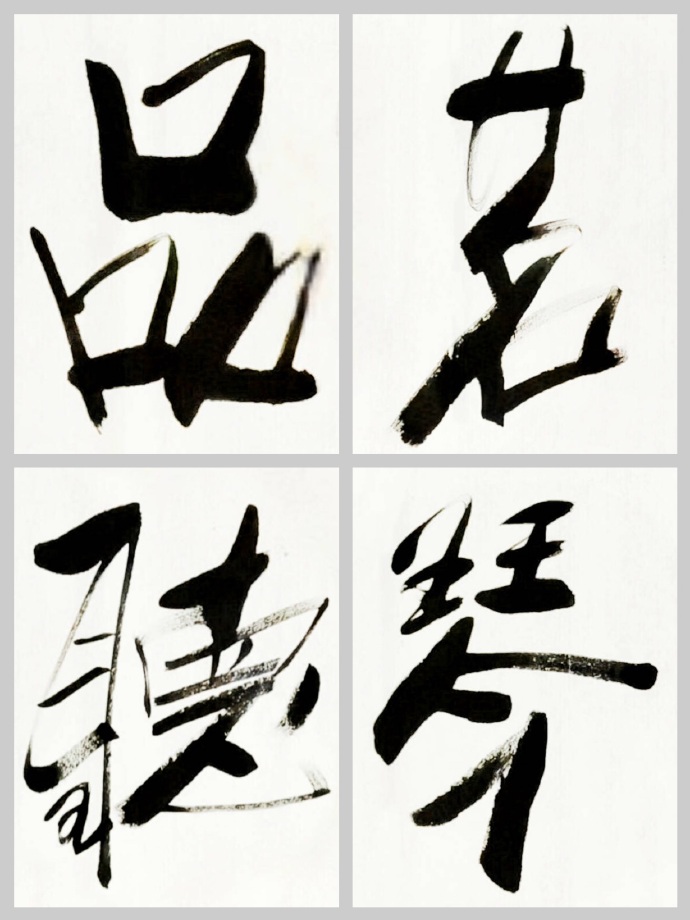 品茗
聽琴